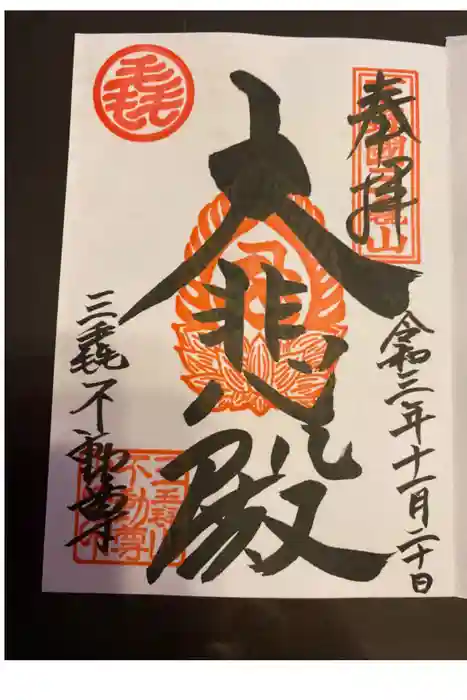 奉拝
大悲殿
令和三年十一月二十日
三毳不動尊
三毳山
不動尊